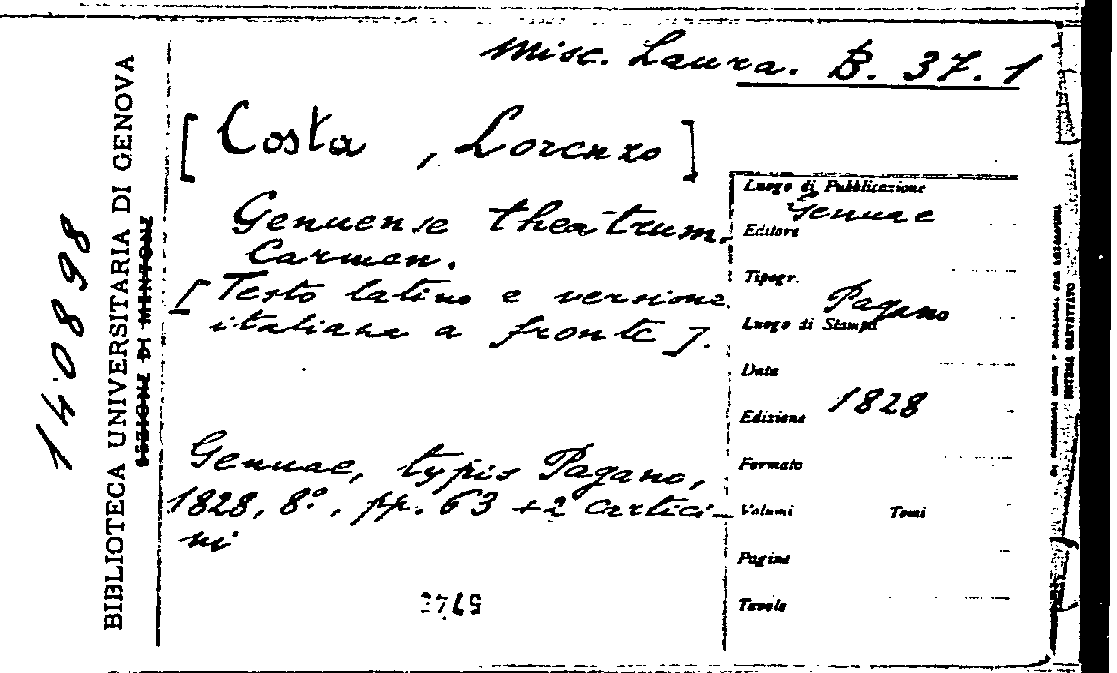 Misc. Laura. B. 37. 1
[Costa, Lorenzo]
Genuense theatrum.
Carmen.
[Testo latino e versione
italiana a fronte].
Genuae, typis Pagano,
1828, 8°, pp. 63 + 2 cartici-
ni
Luogo di Pubblicazione
Genuae
Editore
Tipogr.
Pagano
Luogo di Stampa
Data
1828
Edizione
Formato
Volumi Tomi
Pagine
Tavole
140898
BIBLIOTECA UNIVERSITARIA DI GENOVA
SEZIONE DI MENTONE